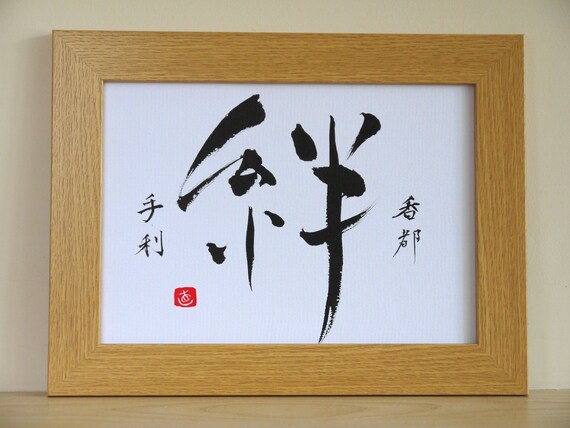 香都
絆
手利